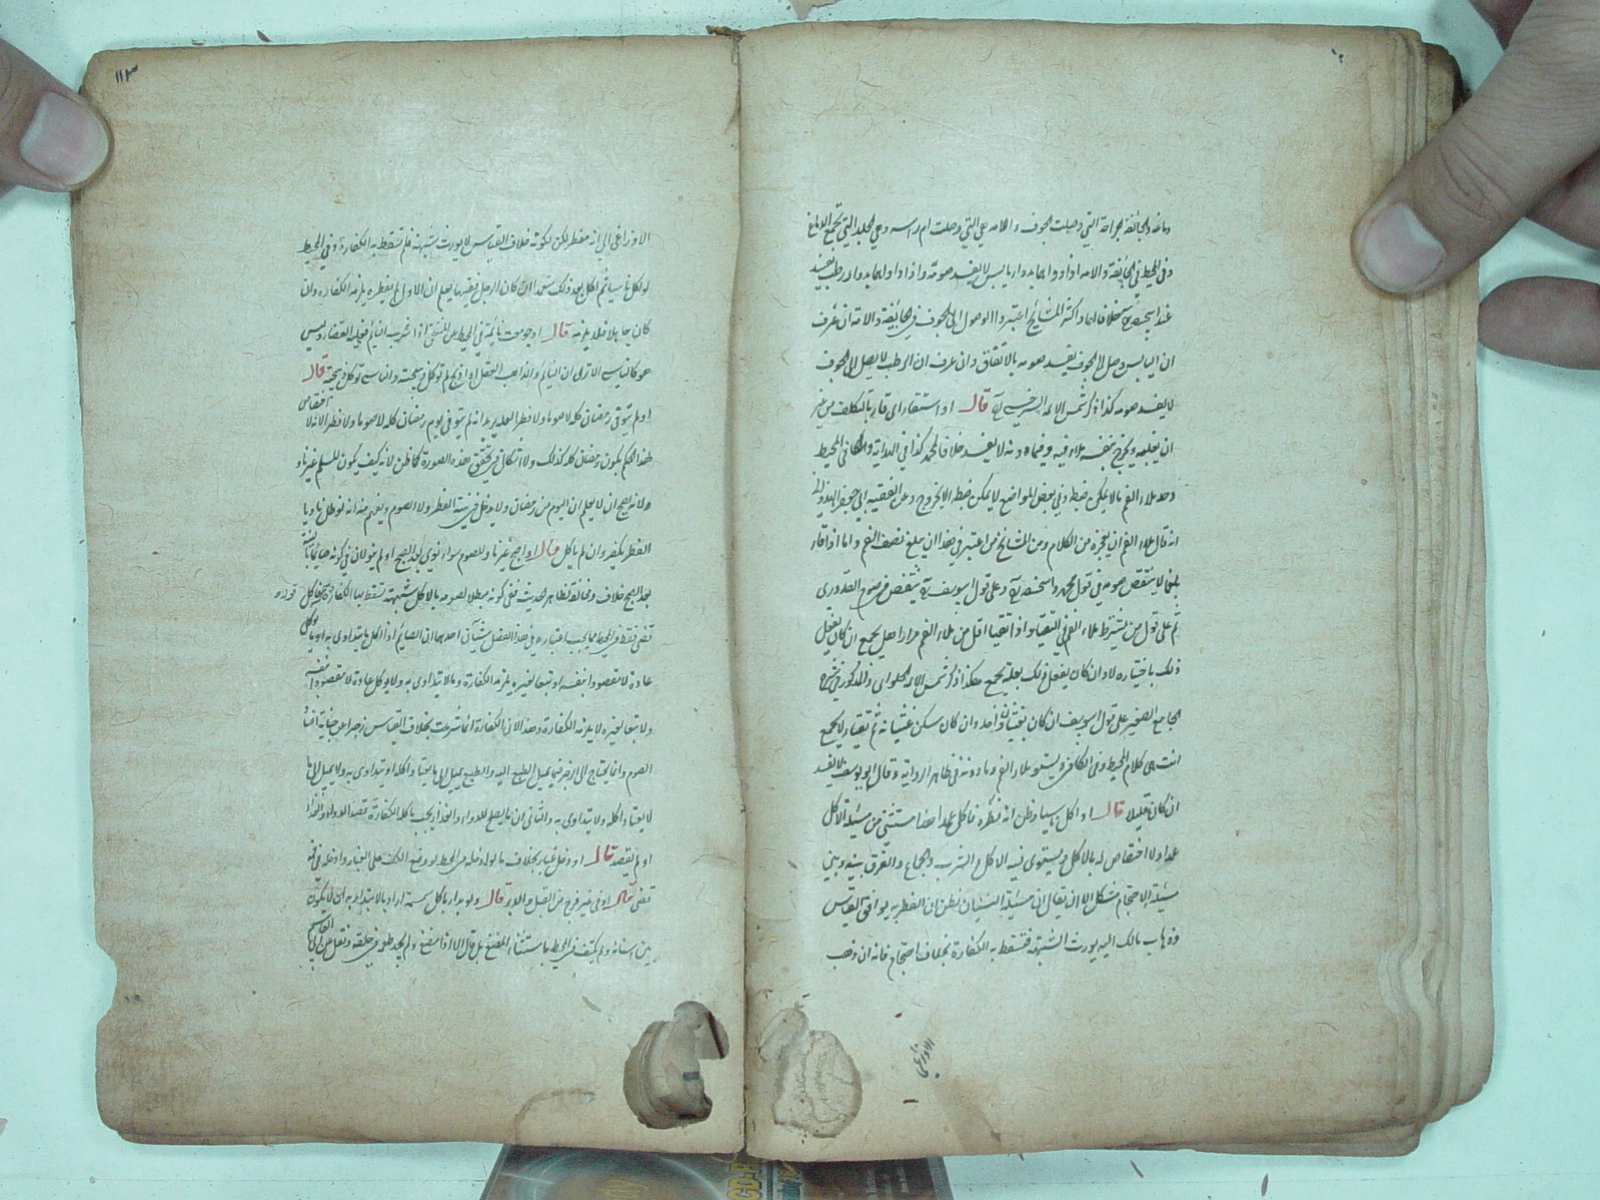 دماغه والجائفة الجراحة التي وصلت الجوف والآمة هي التي وصلت ام راسه وهي الجلد التي تجمع الدماغ
وفي المحيط في الجائفة والآمة اذا دواهما بدواء يابس لا يفسد صومه واذا داواهما بدواء رطب يفسد
عند ابي حنيفة خلافا لهما واكثر المشايخ اعتبروا الوصول الى الجوف في الجائفة والآمة ان عرف
ان اليابس وصل الى الجوف يفسد صومه بالاتفاق وان عرف ان الرطب لا يصل الى الجوف
لا يفسد صومه كذا ذكر شمس الائمة السرخسي قال او استقاء اي قاء بالتكلف من غير
ان يغلبه ويخرج بنفسه ملاء فيه وفيما دونه لا يفسد خلافا لمحمد كذا في الهداية والكافي وفي المحيط
وحد ملاء الفم ما لا يمكن ضبطه وفي بعض المواضع لا يمكن ضبطه الا بخروج وعن الفقيه ابي جعفر الهندواني
انه قال ملاء الفم ان يعجزه من الكلام ومن المشايخ من اعتبر في هذا ان يبلغ نصف الفم واما اذا قاء
بلغما لا ينتقض صومه في قول محمد وابي حنيفة وعلى قول ابي يوسف ينتقض فرضه القدوري
ثم على قول من يشترط ملاء الفم في التقيؤ اذا تقيأ اقل من ملاء الفم مرارا هل يجمع ان كان يفعل
ذلك باختياره لا وان كان يفعل ذلك بعلة يجمع هكذا ذكر شمس الائمة الحلواني والمذكور في شرح
الجامع الصغير على قول ابي يوسف ان كان بغثيان واحد وان كان سكن غثيانه ثم تقيأ لا يجمع
انتهى كلام المحيط وفي الكافي ويستوي ملاء الفم وما دونه في ظاهر الرواية وقال ابو يوسف لا يفسد
ان كان قليلا قال او اكل ناسيا وظن انه فطره فاكل عمدا هذا مستثنى من مسئلة الاكل
عمدا ولا اختصاص له بالاكل ويستوي فيه الاكل والشرب والجماع والفرق بينه وبين
مسئلة الاحتجام مشكل الا ان يقال ان مسئلة النسيان فظن ان الفطر به يوافق القياس
وذهاب مالك اليه يورث الشبهة فتسقط به الكفارة بخلاف احتجام فانه ان ذهب
الاوزاعي
١١٣
الاوزاعي الى انه مفطر لكن لكونه خلاف القياس لا يورث شبهة فلم تسقط به الكفارة وفي المحيط
لو اكل ناسيا ثم اكل بعد ذلك متعمدا ان كان الرجل فقيها يعلم ان الاول لم يفطره يلزمه الكفارة وان
كان جاهلا فلا يلزمه قال او جومعت نائمة في المحيط عن المنتقى اذا شرب النائم فعليه القضاء وليس
هو كالناسي الا ترى ان النائم والذاهب العقل اذا ذبح لم توكل ذبيحته والناسي توكل ذبيحته قال
او لم ينو في رمضان كله لا صوما ولا فطرا لعله يريد انه لم ينو في يوم رمضان كله لا صوما ولا فطرا لانه لا اختصاص
لهذا الحكم بكون رمضان كله كذلك ولا اشكال في تحقق هذه الصورة كما ظن لانه كيف يكون المسلم غير ناو
لانه يصح ان لا يعلم ان اليوم من رمضان ولا يدخل في نيته الفطر ولا الصوم ويفهم منه انه لو ظل ناويا
الفطر يكفر وان لم ياكل قال او اصبح غير ناو للصوم سواء نوى بعد الصبح او لم ينو لان في كونه صائما بالنية
بعد الصبح خلاف ومخالفة لظاهر الحديث ففي كونه مبطلا لصومه بالاكل شبهة تسقط بها الكفارة قال فاكل قوله
قضى فقط وفي المحيط مما يجب اعتباره في هذا الفصل شيآن احدهما ان الصائم اذا اكل ما يتداوى به او يؤكل
عادة لا مقصودا بنفسه او تبعا لغيره يلزمه الكفارة وما لا يتداوى به ولا يؤكل عادة لا مقصودا بنفسه
ولا تبعا لغيره لا يلزمه الكفارة وهذا لان الكفارة انما شرعت بخلاف القياس زجرا عن جناية افساد
الصوم وانما يحتاج الى الزجر فيما يميل الطبع اليه والطبع يميل الى ما يعتاد اكله او يتداوى به ولا يميل الى ما
لا يعتاد اكله ولا يتداوى به والثاني ان ما يصلح للدواء والغذاء يجب باكله الكفارة قصد الدواء والغذاء
او لم يقصد قال او دخل غبار بخلاف ما لو ادخله من المحيط لو وضع الكف على الغبار وادخله في فمه
قضى قال او في غير فرج من القبل والدبر قال ولو بدا باكل سمسمة اراد بالابتداء به ان لا يكون
بين اسنانه ولم يكتف في المحيط باستثناء المضغ بل قال الا اذا مضغ ولم يجد طعمه في حلقه ونقل عن ابي القاسم